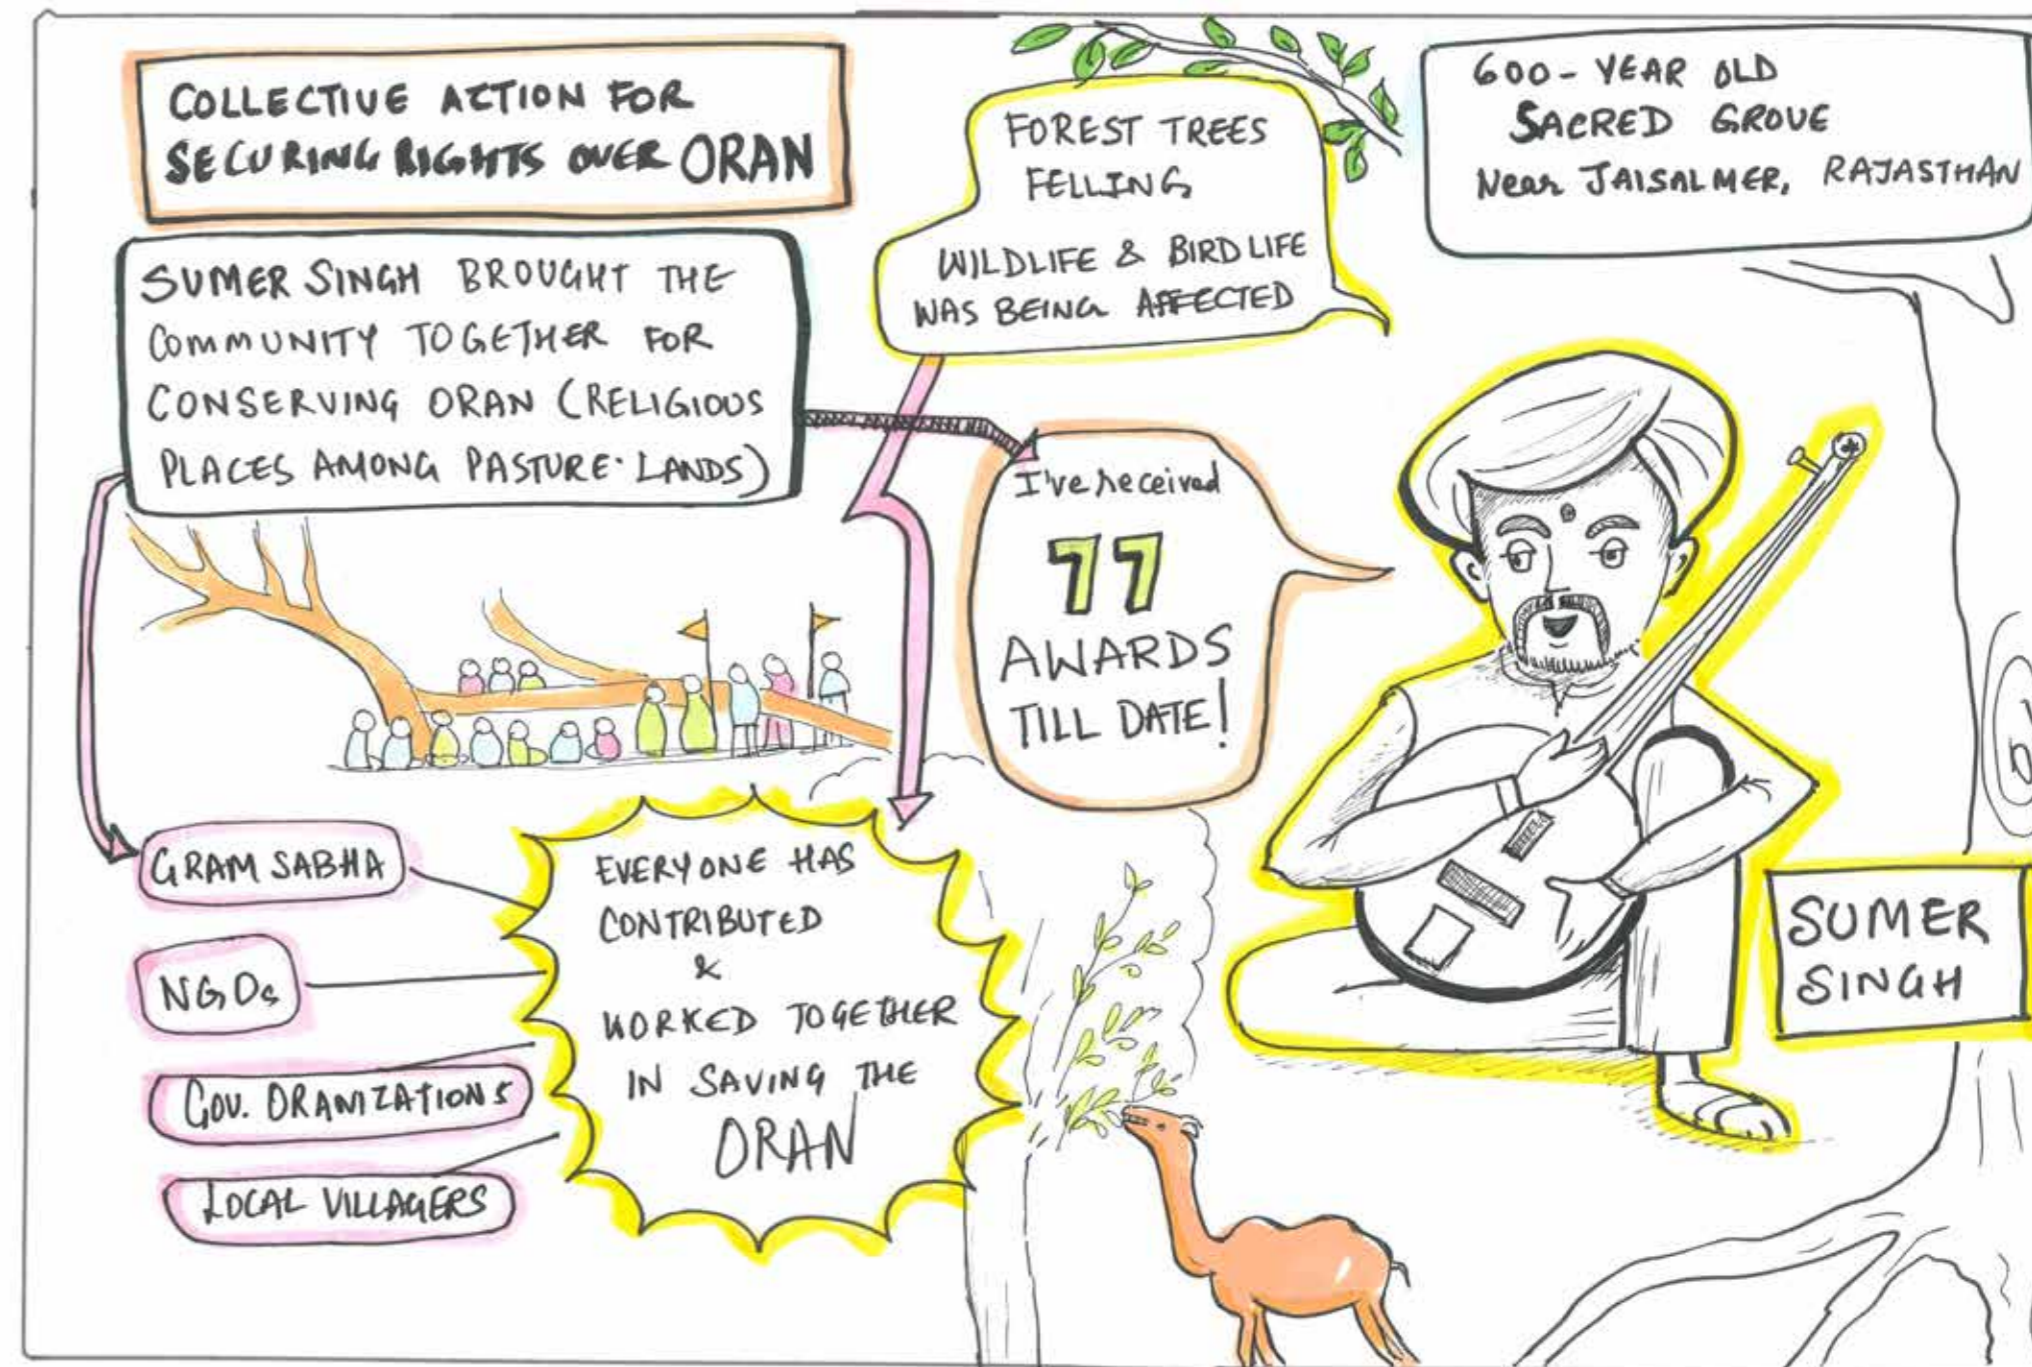 COLLECTIVE ACTION FOR
SECURING RIGHTS OVER ORAN
SUMER SINGH BROUGHT THE
COMMUNITY TOGETHER FOR
CONSERVING ORAN (RELIGIOUS
PLACES AMONG PASTURE-LANDS)
FOREST TREES
FELLING
WILDLIFE & BIRD LIFE
WAS BEING AFFECTED
600-YEAR OLD
SACRED GROVE
Near JAISALMER, RAJASTHAN
I've received
77
AWARDS
TILL DATE!
GRAM SABHA
NGOs
GOV. ORANIZATIONS
LOCAL VILLAGERS
EVERYONE HAS
CONTRIBUTED
&
WORKED TOGETHER
IN SAVING THE
ORAN
SUMER
SINGH